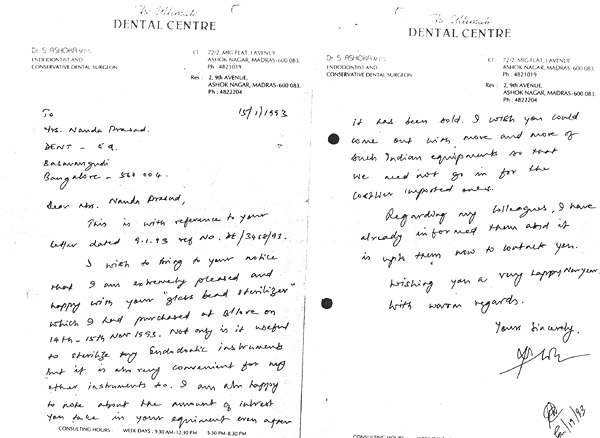 The Ultimate
DENTAL CENTRE
Dr. S ASHOKA M.D.S.
ENDODONTIST AND
CONSERVATIVE DENTAL SURGEON
Cl : 72/2, MIG FLAT, I AVENUE,
ASHOK NAGAR, MADRAS-600 083.
Ph : 4821019
Res : 2, 9th AVENUE,
ASHOK NAGAR, MADRAS-600 083.
Ph : 4822204
15/1/1993
To
Mrs. Nanda Prasad.
DENT - EQ.
Basavangudi
Bangalore - 560 004.
Dear Mrs. Nanda Prasad,
This is with reference to your
letter dated 9-1.93 ref NO. DE/3418/93.
I wish to bring to your notice
that I am extremely pleased and
happy with your "glass bead sterilizer"
which I had purchased at B'lore on
14th - 15th Nov 1993. Not only is it useful
to sterilize my Endodontic instruments
but it is also very convenient for my
other instruments to. I am also happy
to note about the amount of interest
you take in your equiment even after
CONSULTING HOURS : WEEK DAYS : 9.30 AM-12.30 PM 5.30 PM-8.30 PM
The Ultimate
DENTAL CENTRE
Dr. S ASHOKA M.D.S.
ENDODONTIST AND
CONSERVATIVE DENTAL SURGEON
Cl : 72/2, MIG FLAT, I AVENUE
ASHOK NAGAR, MADRAS-600 083.
Ph : 4821019
Res : 2, 9th AVENUE,
ASHOK NAGAR, MADRAS-600 083.
Ph : 4822204
it has been sold. I wish you could
come out with more and more of
such Indian equipments so that
we need not go in for the
costlier imported ones.
Regarding my colleagues, I have
already informed them abd it
is upto them now to contact you.
Wishing you a very happy New year.
With warm regards.
Yours Sincerely,
CONSULTING HOURS : WEEK DAYS : 9.30 AM-12.30 PM 5.30 PM-8.30 PM